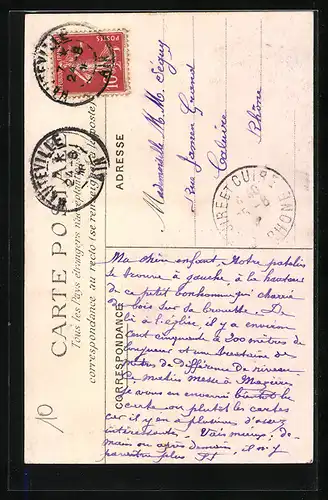 CARTE POSTALE
Tous les Pays étrangers n'acceptent pas
correspondance au recto (se renseigner à la poste)
CORRESPONDANCE
ADRESSE
POSTES
10
HAUTEVILLE
AIN
24 -8
HAUTEVILLE
AIN
24 -8
Mademoiselle M. M. Séguy
Rue Jamen Grand
Caluire
Rhône
CUIRE
RHONE
10
Ma chère enfant. Notre patelin
se trouve à gauche, à la hauteur
de ce petit bonhomme qui charrie
du bois sur la brouette. De
là à l'église, il y a environ
cent cinquante à 200 mètres de
longueur et une trentaine de
mètres de différence de niveau.
Ce matin messe à Mazières
Je vous en enverrai bientôt la
carte ou plutôt les cartes
car il y en a plusieurs d'assez
intéressantes. Vais mieux; de-
main ou après demain, il n'y
paraîtra plus.